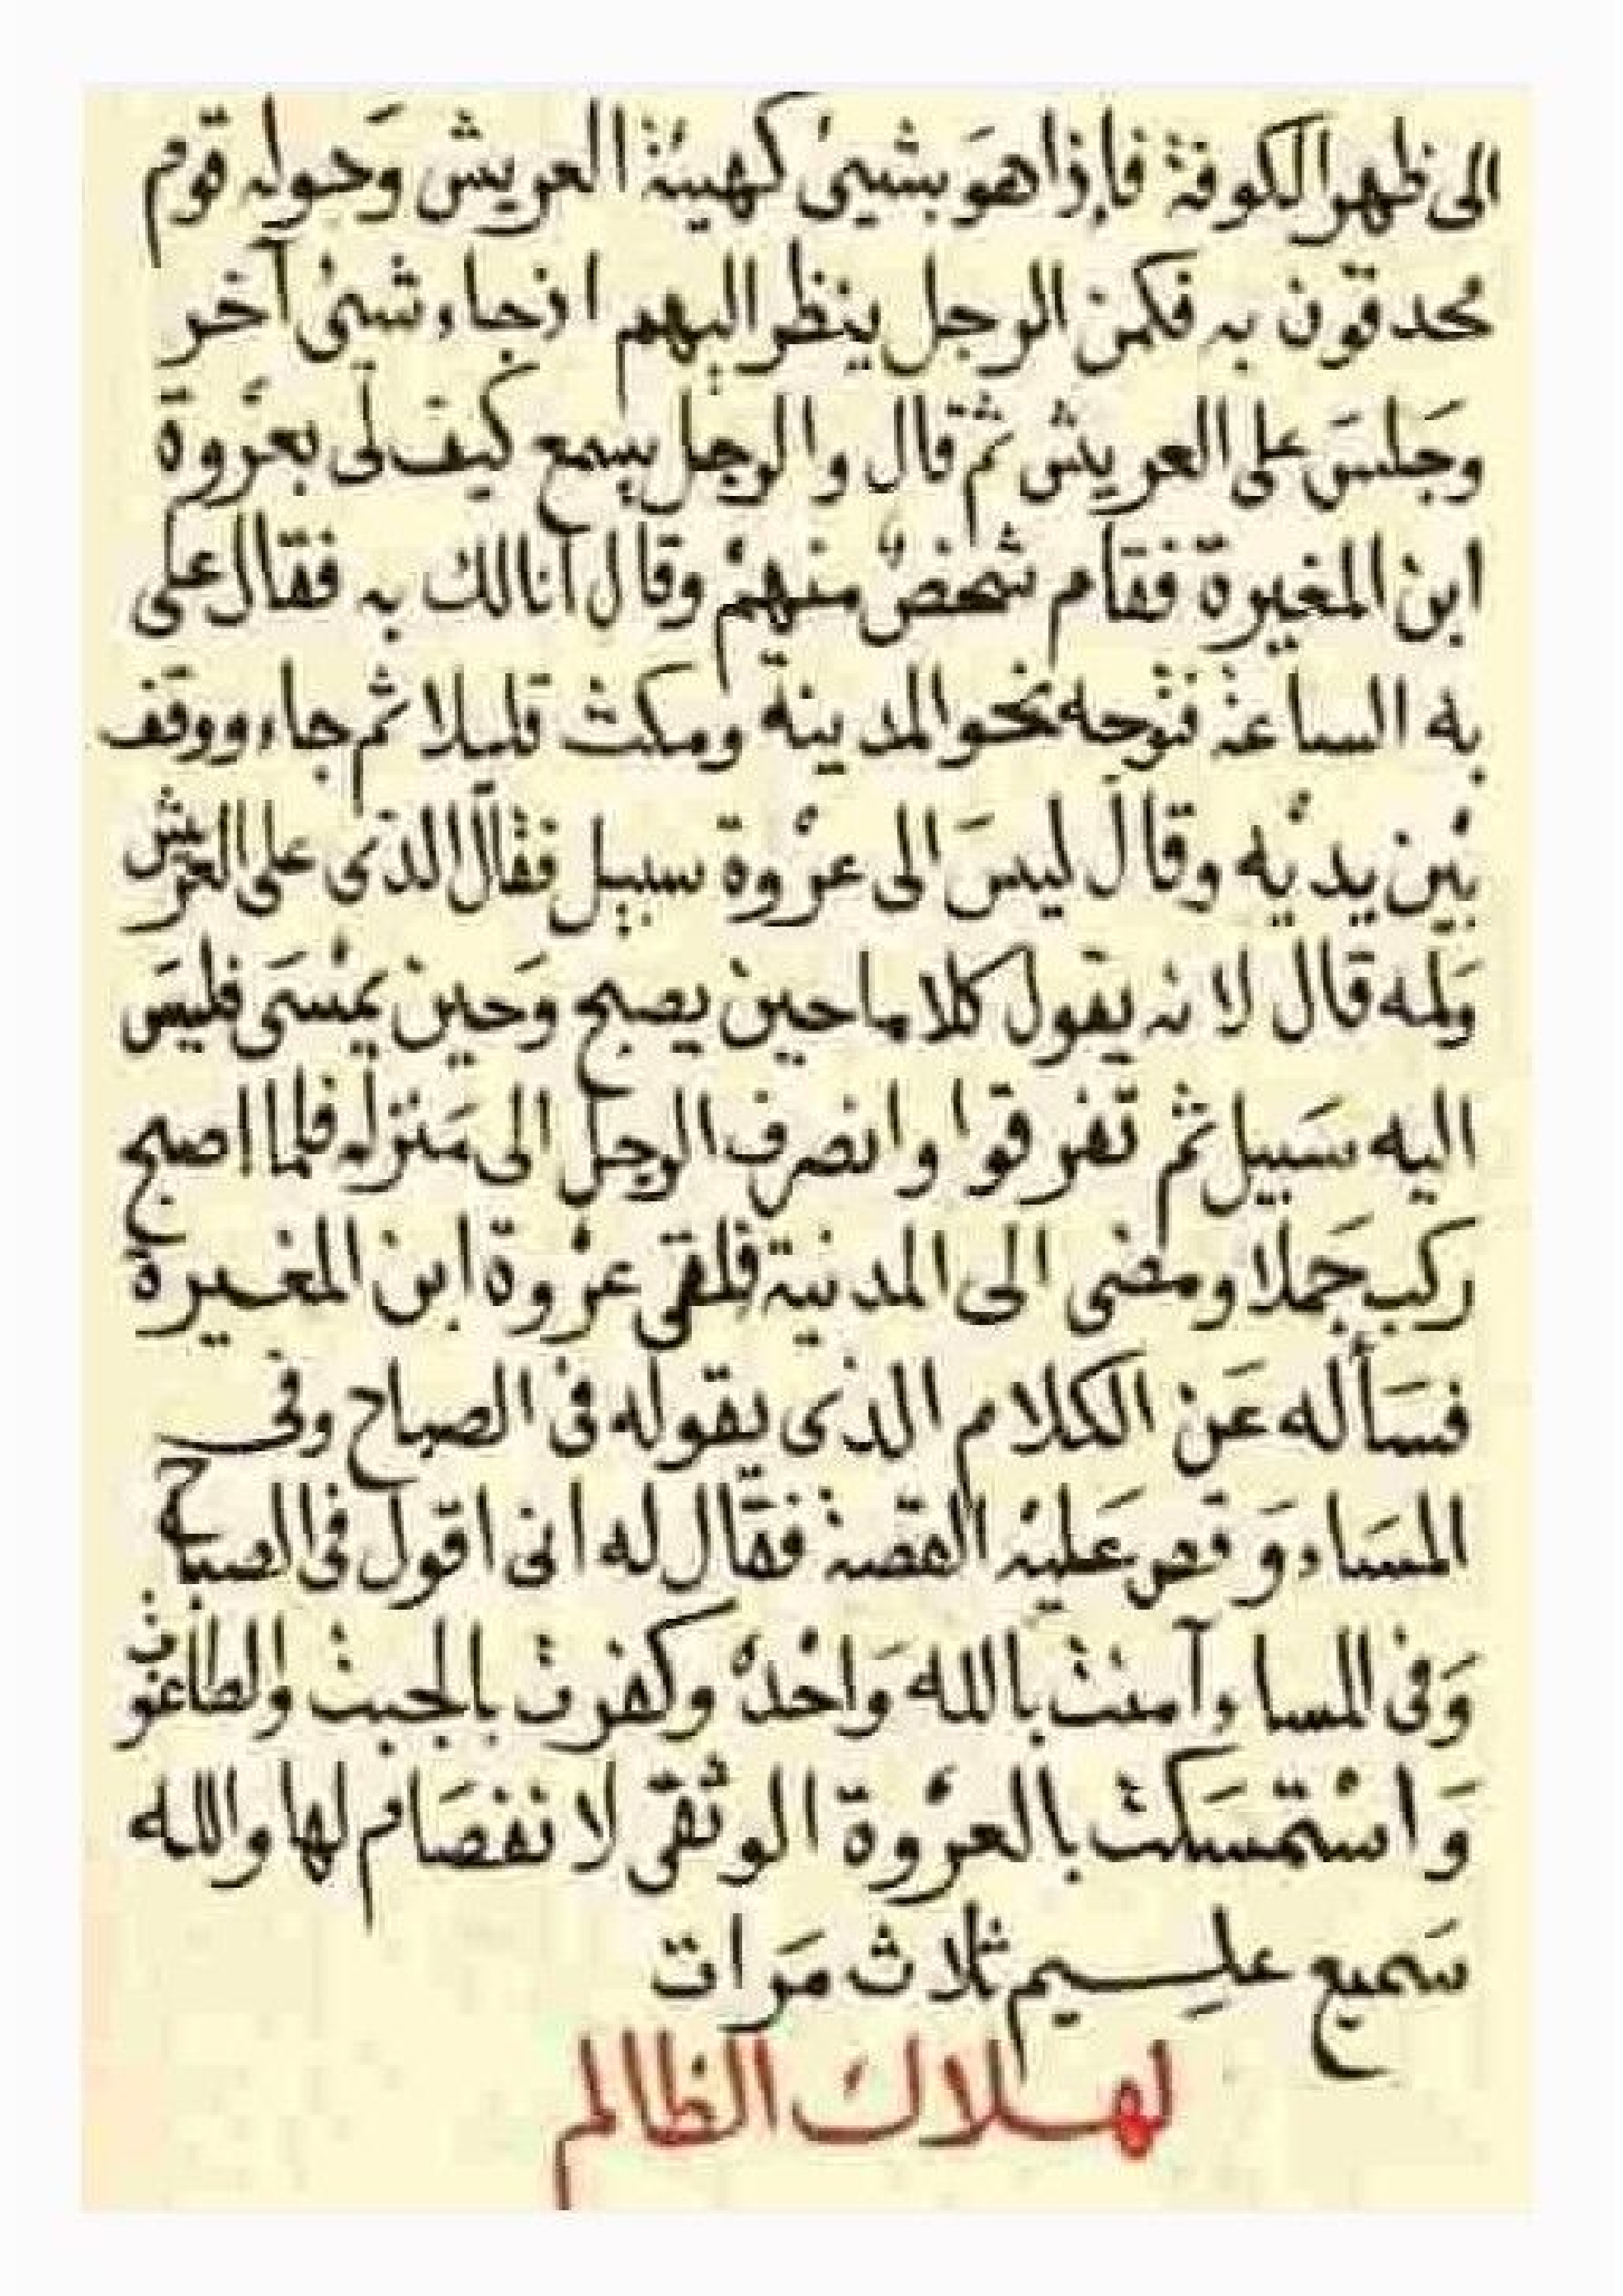 الى ظهر الكوفة فإذا هوَ بشيئ كهيئة العريش وَحوله قوم
محدقون به فكمن الرجل ينظر اليهم اذ جاء شئ آخر
وجلسَ على العريش ثم قال والرجل يسمع كيف لى بعروة
ابن المغيرة فقام شخص منهم وقال انا لك به فقال على
به الساعة فتوجه نحو المدينة ومكث قليلا ثم جاء ووقف
بين يديه وقال ليسَ الى عروة سبيل فقال الذى على العريش
وَلمه قال لانه يقول كلاما حين يصبح وَحين يمسَى فليسَ
اليه سَبيل ثم تفرقوا وانصرف الرجل الى مَنزله فلما اصبح
ركب جَملا ومضى الى المدنية فلقى عروة ابن المغيرة
فسَأله عَن الكلام الذى يقوله فى الصباح وفى
المسَاء وَقص عَليه القصة فقال له انى اقول فى الصباح
وَفى المساء آمنت بالله وَاحدهُ وكفرت بالجبت والطاغوت
وَاستمسَكت بالعروة الوثقى لا نفصَام لها والله
سَميع عليم ثلاث مَرات
لهلاك الظالم